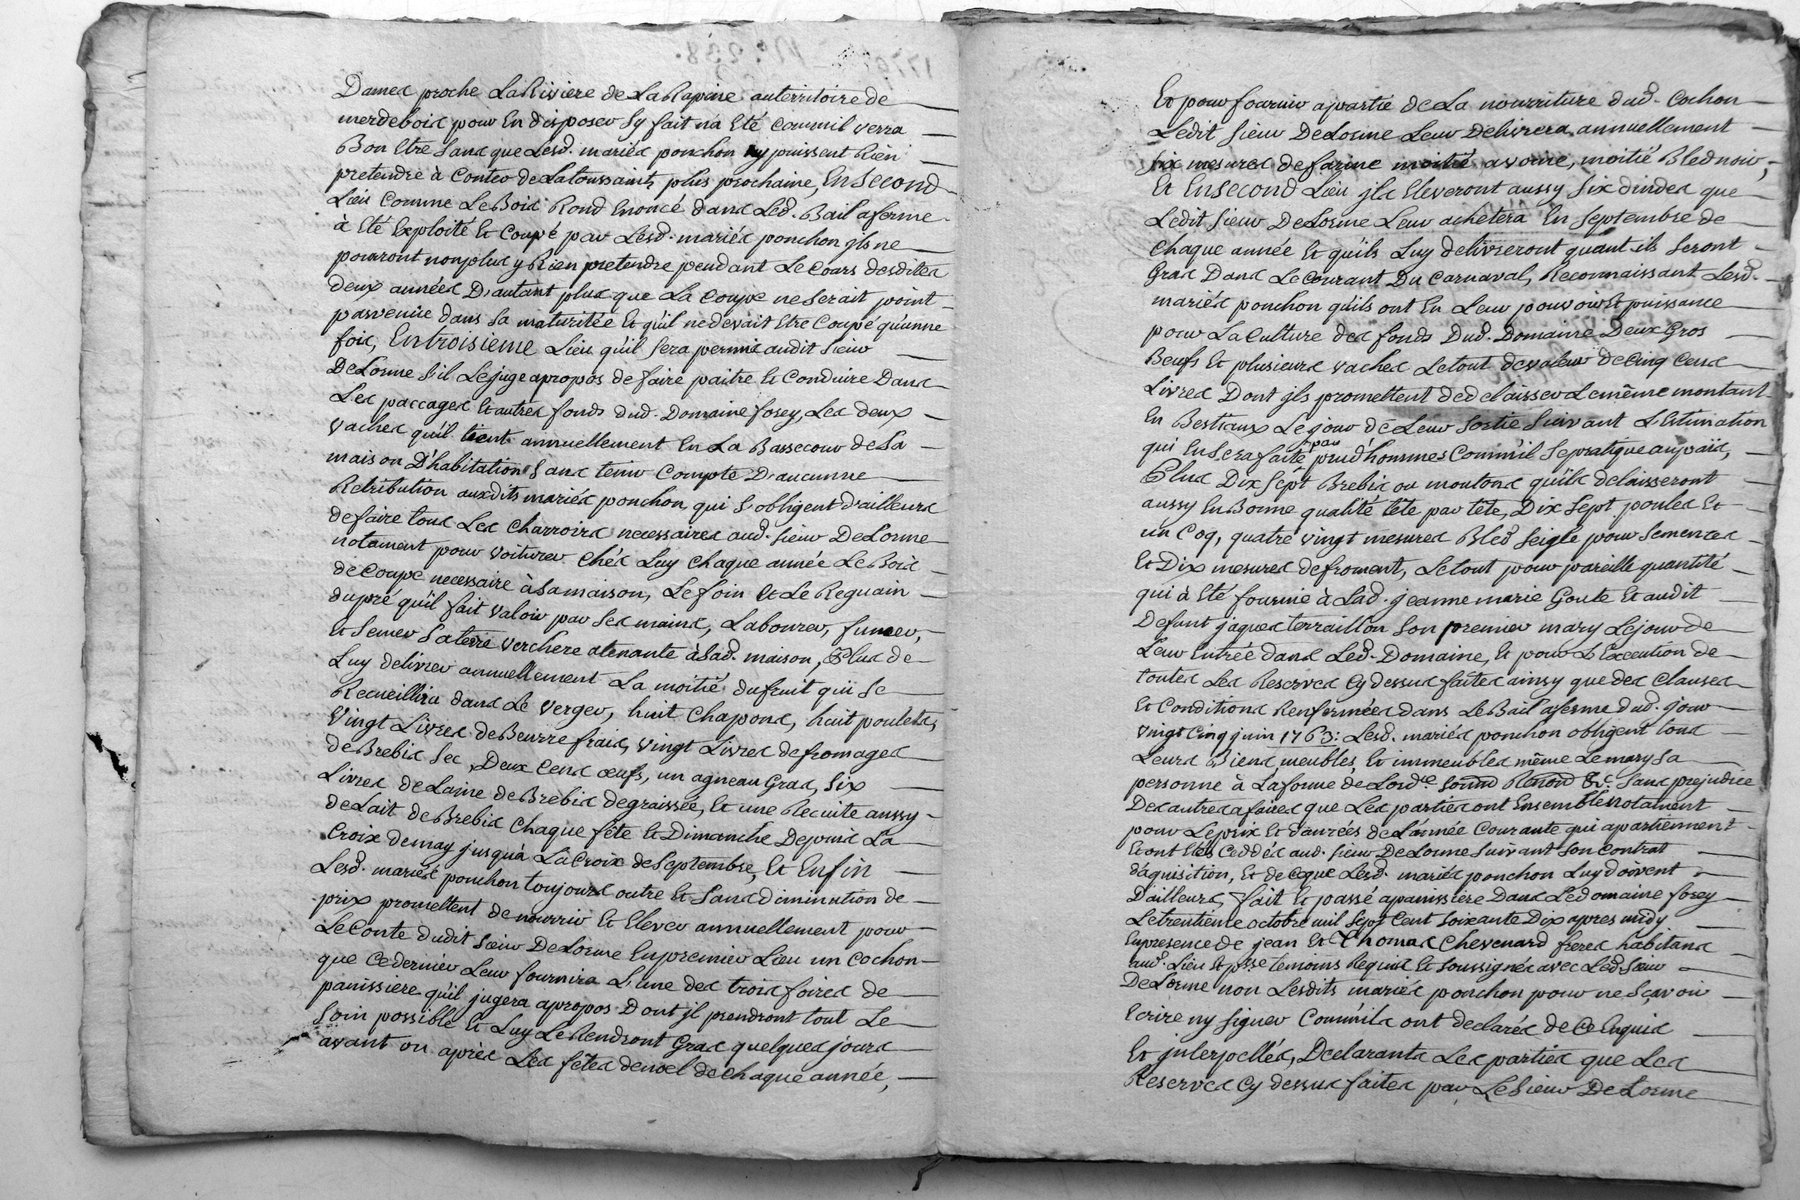 Dames proche La Riviere de La Rapine au territoire de
merdebois pour En disposer Sy fait n'a Eté comm'il verra
Bon Etre sans que Lesd. mariés ponchon ny puissent Rien
pretendre à Conter de La toussaint plus prochaine, En Second
Lieu Comme Le Bois Rond Enoncé dans Led. Bail aferme
à Eté Exploité Et Coupé par Lesd. mariés ponchon jls ne
pourront non plus y Rien pretendre pendant Le Cours desdittes
deux années D'autant plus que La Coupe ne serait point
parvenüe dans sa maturitée Et qu'il ne devait Etre Coupé qu'unne
fois, En troisieme Lieu qu'il sera permis audit Sieur
DeLorme S'il Le juge apropos de faire paitre Et Conduire Dans
Les paccages Et autres fonds dud. Domaine forey, Les deux
vaches qu'il tient annuellement En La Bassecour de Sa
maison D'habitation Sans tenir Compte D'aucunne
Retribution auxdits mariés ponchon qui S'obligent d'ailleurs
de faire tous Les Charroirs necessaires aud. Sieur DeLorme
notament pour voiturer Chés Luy Chaque année Le Bois
de Coupe necessaire à Sa maison, Le foin Et Le Reguain
du pré qu'il fait valoir par Ses mains, Labourer, fumer,
Et Semer Sa terre verchere atenante à Sad. maison, Plus de
Luy delivrer annuellement La moitié du fruit qui Se
Recueillira dans Le verger, huit Chapons, huit poulets,
Vingt Livres de Beurre frais, vingt Livres de fromages
de Brebis Sec, Deux Cens œufs, un agneau Gras, Six
Livres de Laine de Brebis degraissée, Et une Recuite aussy
de Lait de Brebis Chaque fête Et Dimanche Depuis La
Croix de may jusqu'à La Croix de Septembre, Et Enfin
Lesd. mariés ponchon toujours outre Et Sans diminution de
prix promettent de nourrir Et Elever annuellement pour
Le Conte dudit Sieur DeLorme En premier Lieu un Cochon
que Ce dernier Leur fournira L'une des trois foires de
panissiere qu'il jugera apropos Dont jl prendront tout Le
Soin possible Et Luy Le Rendront Gras quelques jours
avant ou après Les fêtes de noel de Chaque année,
Et pour fournir apartie de La nourriture dud. Cochon
Ledit Sieur DeLorme Leur Delivrera annuellement
Six mesures de farine moitié avoine, moitié Bled noir,
Et En Second Lieu jls Eleveront aussy Six dindes que
Ledit Sieur DeLorme Leur achetera En Septembre de
Chaque année Et qu'ils Luy delivreront quant ils Seront
Gras Dans Le Courant Du Carnaval, Reconnaissant Lesd.
mariés ponchon qu'ils ont En Leur pouvoir Et puissance
pour La Culture des fonds Dud. Domaine Deux Gros
Bœufs Et plusieurs vaches Le tout de valeur de Cinq Cens
Livres Dont jls promettent de delaisser Le même montant
En Bestiaux Le jour de Leur Sortie Suivant L'Estimation
qui En Sera faitte par prud'hommes Comm'il Se pratique au païs,
Plus Dix Sept Brebis ou moutons qu'ils delaisseront
aussy En Bonne qualité tête par tête, Dix Sept poules Et
un Coq, quatre vingt mesures Bled Seigle pour Semences
Et Dix mesures de froment, Le tout pour pareille quantité
qui à Eté fournie à Lad. jeanne marie Goute Et audit
Defunt jaques terraillon Son premier mary Le jour de
Leur Entrée dans Led. Domaine, Et pour L'Execution de
toutes Les Reserves Cy dessus faites ainsy que des Clauses
Et Conditions Renfermées dans Le Bail aferme dud. jour
vingt Cinq juin 1763: Lesd. mariés ponchon obligent tous
Leurs Biens meubles, Et immeubles même Le mary Sa
personne à La forme de Lord.ce Soum Renon &c. Sans prejudice
Des autres afaires que Les parties ont Ensemble notament
pour Le prix Et danrées de L'année Courante qui apartiennent
Et ont Etés Cedées aud. Sieur DeLorme Suivant Son Contrat
d'aquisition, Et de Ce que Lesd. mariés ponchon Luy doivent
D'ailleurs, fait Et passé apanissiere Dans Led. domaine forey
Le trentieme octobre mil Sept Cent Soixante Dix apres midy
En presence de jean Et Thomas Chevenard freres habitans
aud. Lieu Et p.sse temoins Requis Et Soussignés avec Led. Sieur
DeLorme non Lesdits mariés ponchon pour ne Sçavoir
Ecrire ny Signer Comm'ils ont declarés de Ce Enquis
Et jnterpellés, Declarants Les parties que Les
Reserves Cy dessus faites par Le Sieur DeLorme